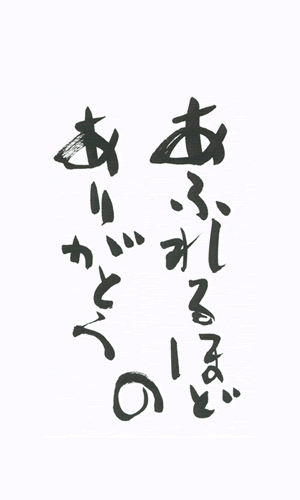 あふれるほど
の
ありがとう